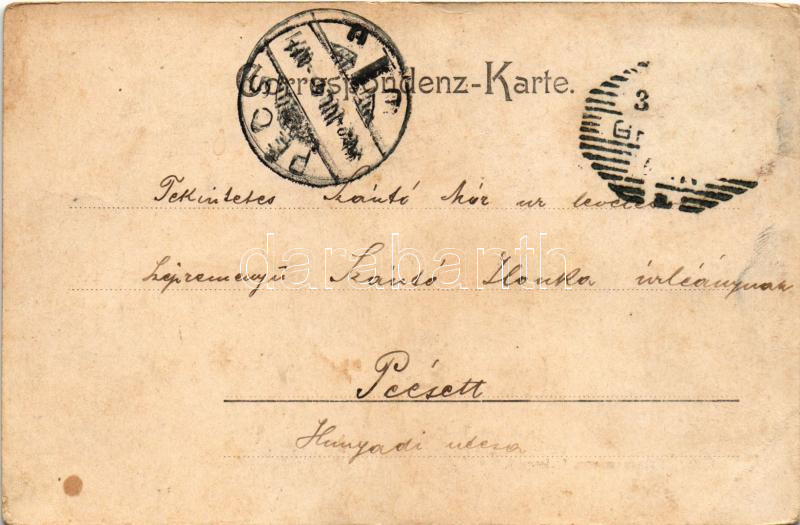 Correspondenz-Karte.
PÉCS
Tekintetes Szántó Mór ur leveles
szépreményű Szántó Ilonka úrleánynak
Pécsett
Hunyadi utcza
darabanth